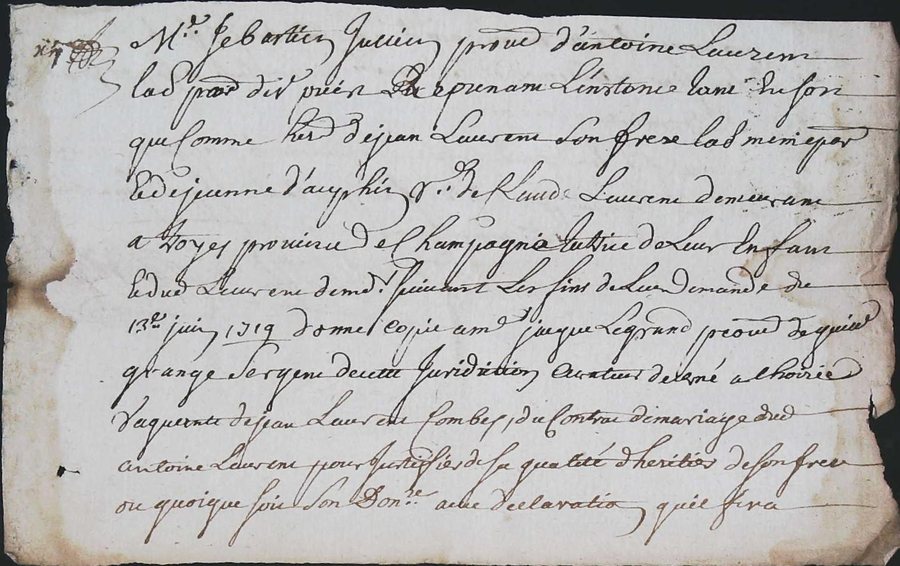 Me. Sebastien Jullien procd d'antoine Laurent
lad pard dit prieés reprenant L'instance tant En son
que Comme herd dejean Laurent Son frere lad mem
Et dejeanne d'auphin Ve. de Claude Laurent demeurant
a troyes province de Champagne tutrice de Leur Enfant
Et dud Laurent demdr. suivant Les fins de Leur demande du
13e. juin 1719 donne copie a me jacque Legrand procd de guill
grange Sergent de cette Juridiction Curateur decerné a lhoirie
Vaquante dejean Laurent Combes, du Contrat demariage dud
antoine Laurent pour Justiffier de sa qualité d'heritier de son frere
ou quoique soit Son Donre. avec declaration quil fera